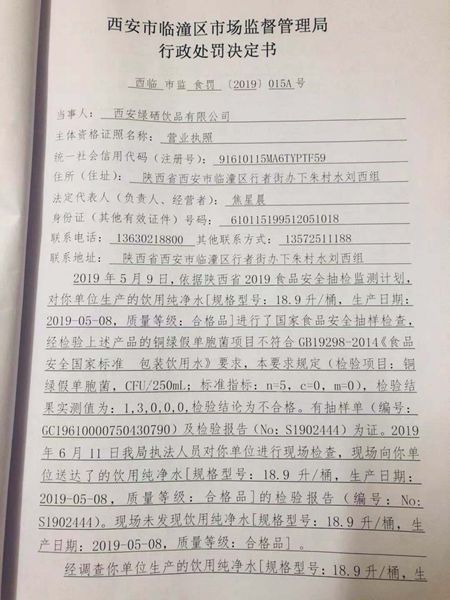 西安市临潼区市场监督管理局
行政处罚决定书
西临 市监 食罚 〔2019〕 015A 号
当事人： 西安绿硒饮品有限公司
主体资格证照名称： 营业执照
统一社会信用代码（注册号）：91610115MA6TYPTF59
住所（住址）： 陕西省西安市临潼区行者街办下朱村水刘西组
法定代表人（负责人、经营者）： 焦星晨
身份证（其他有效证件）号码： 610115199512051018
联系电话： 13630218800 其他联系方式： 13572511188
联系地址： 陕西省西安市临潼区行者街办下朱村水刘西组
2019 年 5 月 9 日,依据陕西省 2019 食品安全抽检监测计划,
对你单位生产的饮用纯净水[规格型号：18.9 升/桶，生产日期：
2019-05-08，质量等级：合格品]进行了国家食品安全抽样检查，
经检验上述产品的铜绿假单胞菌项目不符合 GB19298-2014《食品
安全国家标准 包装饮用水》要求，本要求规定（检验项目：铜
绿假单胞菌，CFU/250mL；标准指标：n=5，c=0，m=0），检验结
果实测值为：1,3,0,0,0,检验结论为不合格。有抽样单（编号：
GC19610000750430790）及检验报告（No：S1902444）为证。2019
年 6 月 11 日我局执法人员对你单位进行现场检查，现场向你单
位送达了的饮用纯净水[规格型号：18.9 升/桶，生产日期：
2019-05-08，质量等级：合格品]的检验报告（编号：No：
S1902444）。现场未发现饮用纯净水[规格型号：18.9 升/桶，生
产日期：2019-05-08，质量等级：合格品]。
经调查你单位生产的饮用纯净水[规格型号：18.9 升/桶，生